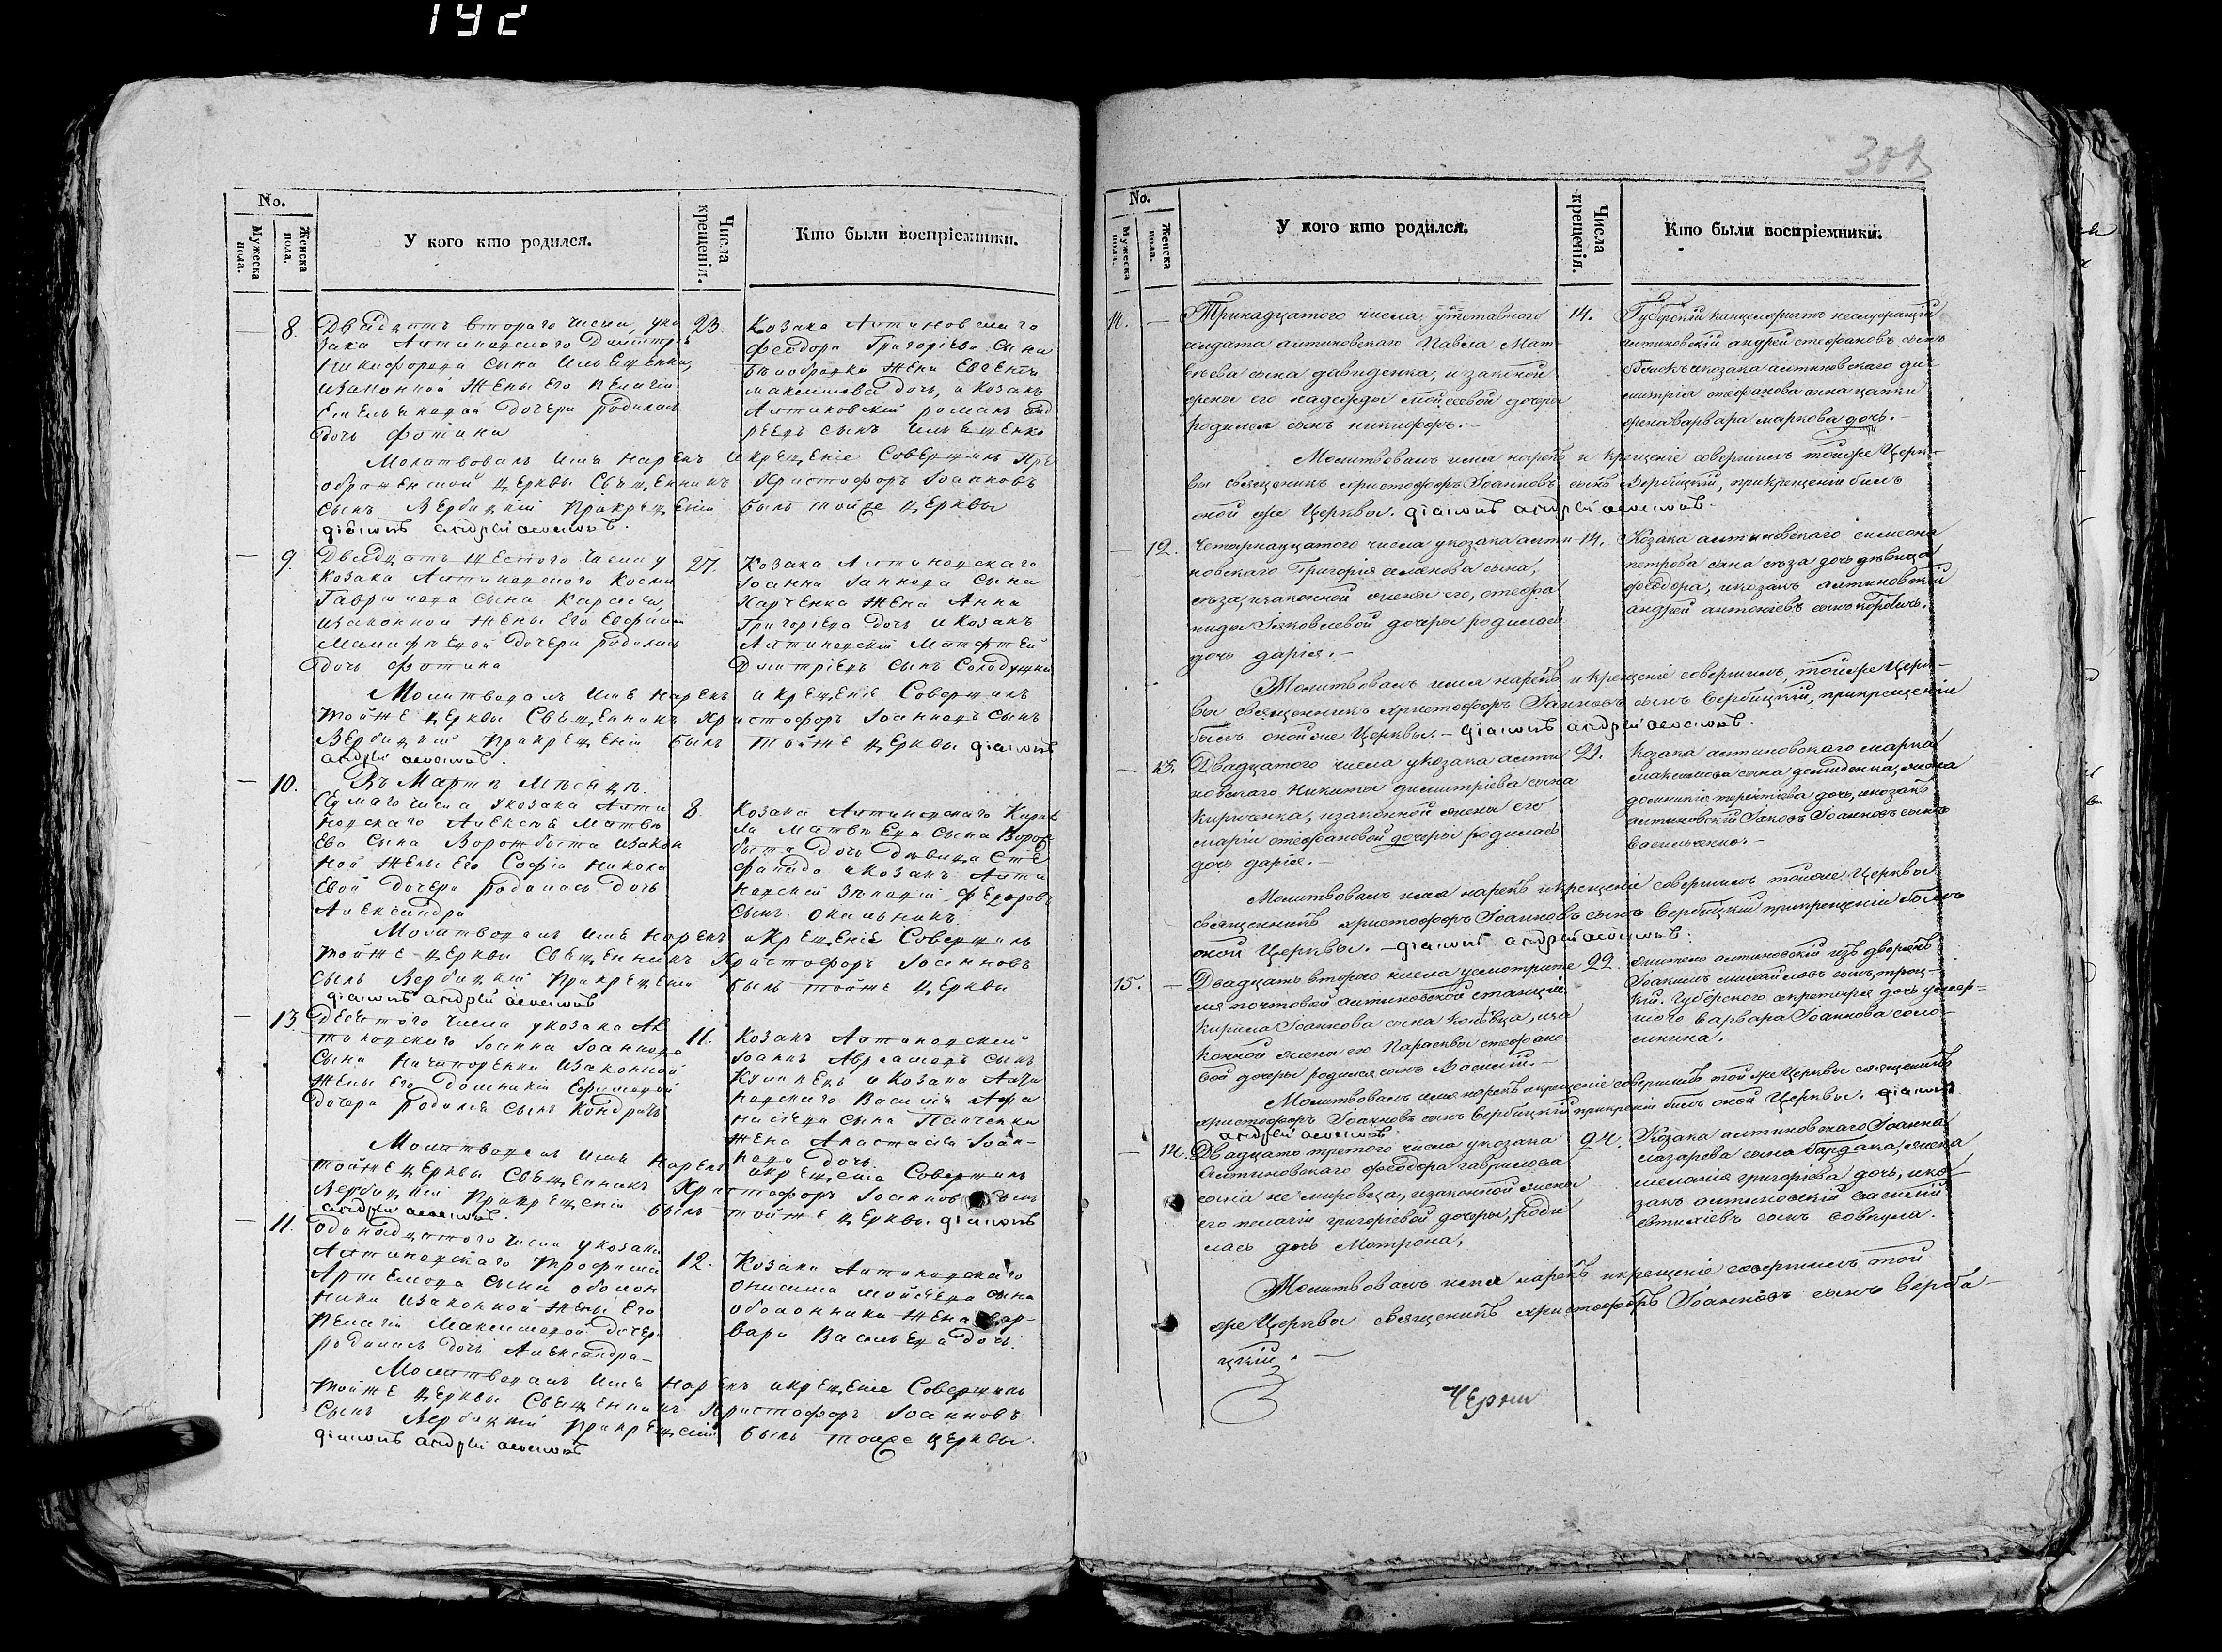 192
No.
Мужеска пола.
Женска пола.
У кого кто родился.
Числа крещенія.
Кто были воспріемники.
8. Двадцять втораго числа, уко
зака Алтиновского Дмитрі
Никифорова сына Ильященки,
изаконной жены его Пелагіи
дочери родилась
дочь Фотина
23. Козака Алтиновскаго
Феодора Григоріева сына
Бѣлобродка жена Евгенія
максимова дочь, а козакъ
Алтиновскій романъ Анд
реевъ сынъ Ильященко
Молитвовалъ имя нарекъ и крещеніе совершилъ Пре
ображенской церкви Священникъ Христофоръ Іоанновъ
сынъ Вербицкій при крещеніи былъ тойже церквы
діаконъ андрей
9. Двадцять шестого числа у
козака Алтиновского Космы
Гаврилова сына Карася,
изаконной жены его Евфиміи
дочери родилась
дочь Фотина
27. Козака Алтиновскаго
Іоанна Іаннова сына
Харченка жена Анна
Григоріева дочь и козакъ
Алтиновскій Матфѣй
Дмитріевъ сынъ
Молитвовалъ имя нарекъ и крещеніе совершилъ
тойже церкви Священникъ Христофоръ Іоанновъ сынъ
Вербицкій при крещеніи былъ тойже церквы діаконъ
андрей
10. Въ Мартѣ Мѣсяцѣ.
Седмаго числа укозака Алти
новскаго Алексѣя Матвѣ
ева сына Ворожбита изакон
ной жены его Софіи Никола
евой дочери родилась дочь
Александра
8. Козака Алтиновскаго Кирил
ла Матвѣева сына Ворож
бита дочь дѣвица Сте
фанида и козакъ Алти
новскій Зѣновій Федоровъ
сынъ
Молитвовалъ имя нарекъ и крещеніе совершилъ
тойже церкви Священникъ Христофоръ Іоанновъ
сынъ Вербицкій при крещеніи былъ тойже церквы
діаконъ андрей
13. Десятого числа укозака Ал
тиновского Іоанна Іоаннова
сына Ничипоренка изаконной
жены его Домникіи Ефимовой
дочери родился сынъ Кондратъ
11. Козакъ Алтиновскій
Іоаннъ Авраамовъ сынъ
и козака Алти
новскаго Василія Афа
насіева сына Панченка
жена Анастасія Іоан-
нова дочь.
Молитвовалъ имя нарекъ и крещеніе совершилъ
тойже церкви Священникъ Христофоръ Іоанновъ сынъ
Вербицкій при крещеніи былъ тойже церквы діаконъ
андрей
11. Одинадцятого числа укозака
Алтиновскаго Трофима
Артемова сына оболон
ника изаконной жены его
Пелагіи Максимовой дочери
родилась дочь Александра
12. Козака Алтиновскаго
Онисима Мойсѣева сына
оболонника жена Вар-
вара Васильева дочь.
Молитвовалъ имя нарекъ и крещеніе совершилъ
тойже церквы Священникъ Христофоръ Іоанновъ
сынъ Вербицкій при крещеніи былъ тойже церквы.
діаконъ андрей
No.
Мужеска пола.
Женска пола.
У кого кто родился.
Числа крещенія.
Кто были воспріемники.
14. Тринадцатого числа, уотставного
солдата алтиновскаго Павла Мат
вѣева сына давиденка, и законой
жены его надежды мойсеевой дочеры
родился сынъ никифоръ.-
14. Губерскій канцеляристъ
алтиновскій андрей стефановъ сынъ
и козака алтиновскаго ди
митрія стефанова сына цапки
жена варвара маркова дочь.-
Молитвовалъ имя нарекъ и крещеніе совершилъ тойже Церк-
вы священикъ христофоръ Іоанновъ сынъ Вербицкій, прикрещеніи билъ
оной же Церквы. діаконъ андрей
12. Четырнадцатого числа укозака алти
новскаго Григорія семенова сына,
сюза, изаконной жены его, стефа
ниды Іаковлевой дочеры родилась
дочь дарія.-
14. Козака алтиновскаго симеона
петрова сына сюза дочь дѣвица
феодора, икозакъ алтиновскій
андрей антоніевъ сынъ
Молитвовалъ имя нарекъ, и крещеніе совершилъ, тойже Церк-
вы священникъ христофоръ Іанновъ сынъ вербицкій, прикрещеніи
билъ онойже Церквы.- діаконъ андрей
13. Двадцатого числа укозака алти
новскаго Никиты димитріева сына
Кириченка, изаконной жены его
маріи стефановой дочеры родилась
дочь дарія.-
21. Козака алтиновскаго марка
максимова сына демиденка, жена
домникія терентіева дочь, икозакъ
алтиновскій Іаковъ Іоанновъ сынъ
василченко.-
Молитвовалъ имя нарекъ икрещеніе совершилъ тойже Церквы
священникъ христофоръ Іоанновъ сынъ Вербицкій прикрещеніи билъ
оной Церквы.- діаконъ андрей
15. Двадцать второго числа усмотрите
ля почтовой алтиновской станціи
кирила Іоаннова сына изa
конной жены его Параскевы стефано-
вой дочеры родился сынъ Василій.-
22. жителъ алтиновскій изъ дворянъ
Іоакимъ михайловъ сынъ, троц-
кій. Губерского секретаря дочь умер-
шого варвара Іоаннова соло-
нинина.
Молитвовалъ имя нарекъ икрещеніе совершилъ той же Церквы священикъ
христофоръ Іоанновъ сынъ Вербицкій прикреніи билъ оной Церквы. діаконъ
андрей
14. Двадцать третого числа укозака
Алтиновскаго феодора гаврилова
сына немировца, изаконной жены
его пелагіи григоріевой дочеры, роди
лась дочь Мотрона,
24. Козака алтиновскаго Іоанна
лазарева сына бардака, жена
меланія григоріева дочь, ико
закъ алтиновскій василій
евтихіевъ сынъ совкула.
Молитвовалъ имя нарекъ икрещеніе совершилъ той
же Церквы священикъ христофоръ Іоанновъ сынъ верби-
цкій.-